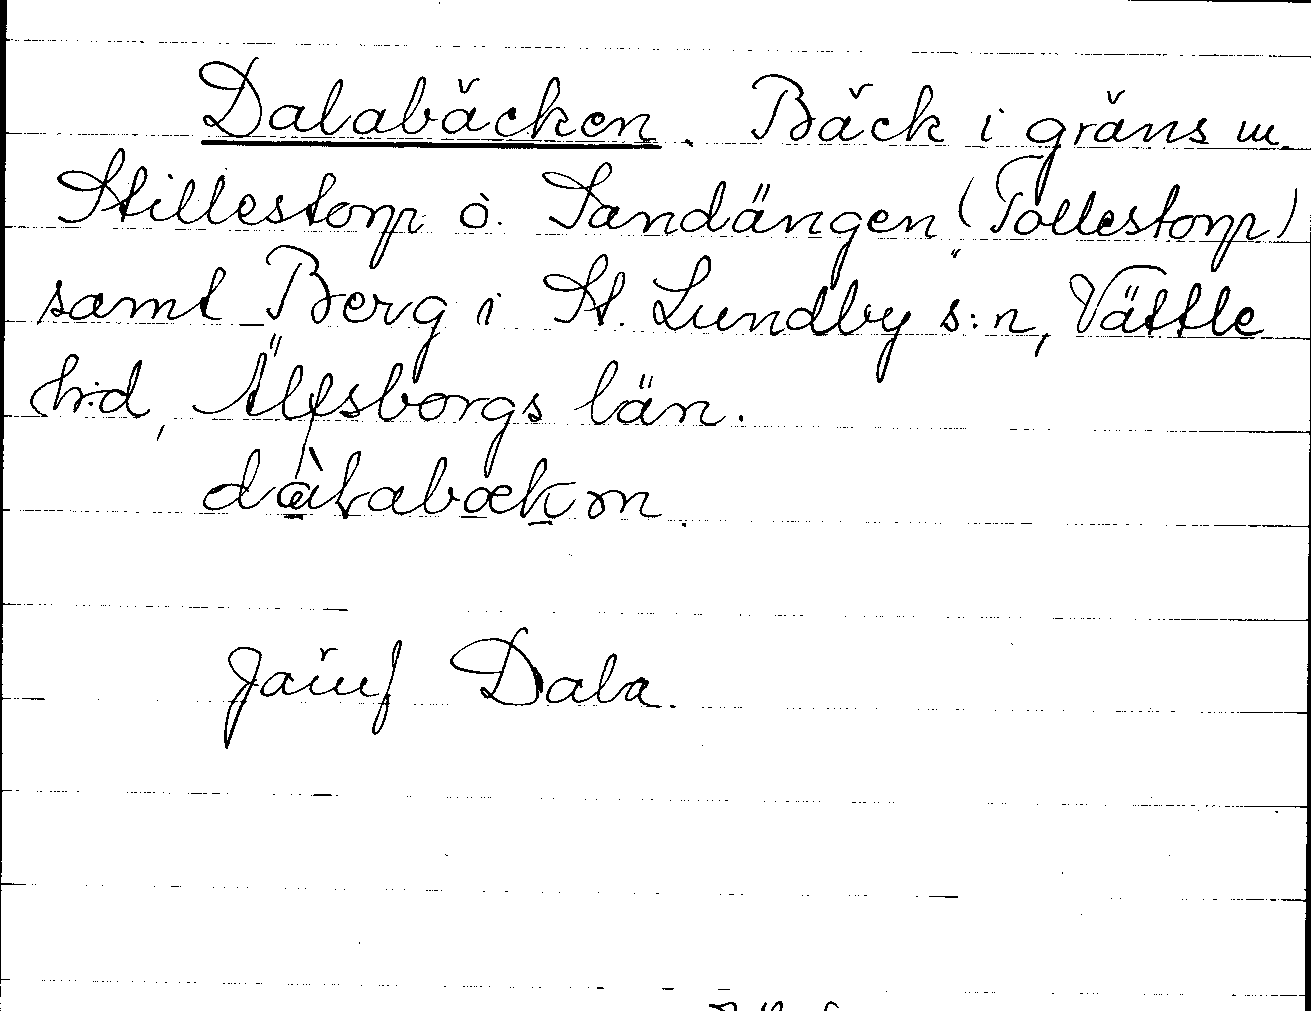 Dalabäcken. Bäck i gräns m.
Stillestorp o. Sandängen (Tollestorp)
samt Berg i St. Lundby s:n, Vättle
h:d, Älfsborgs län.
dàlabækm.
Jämf Dala.